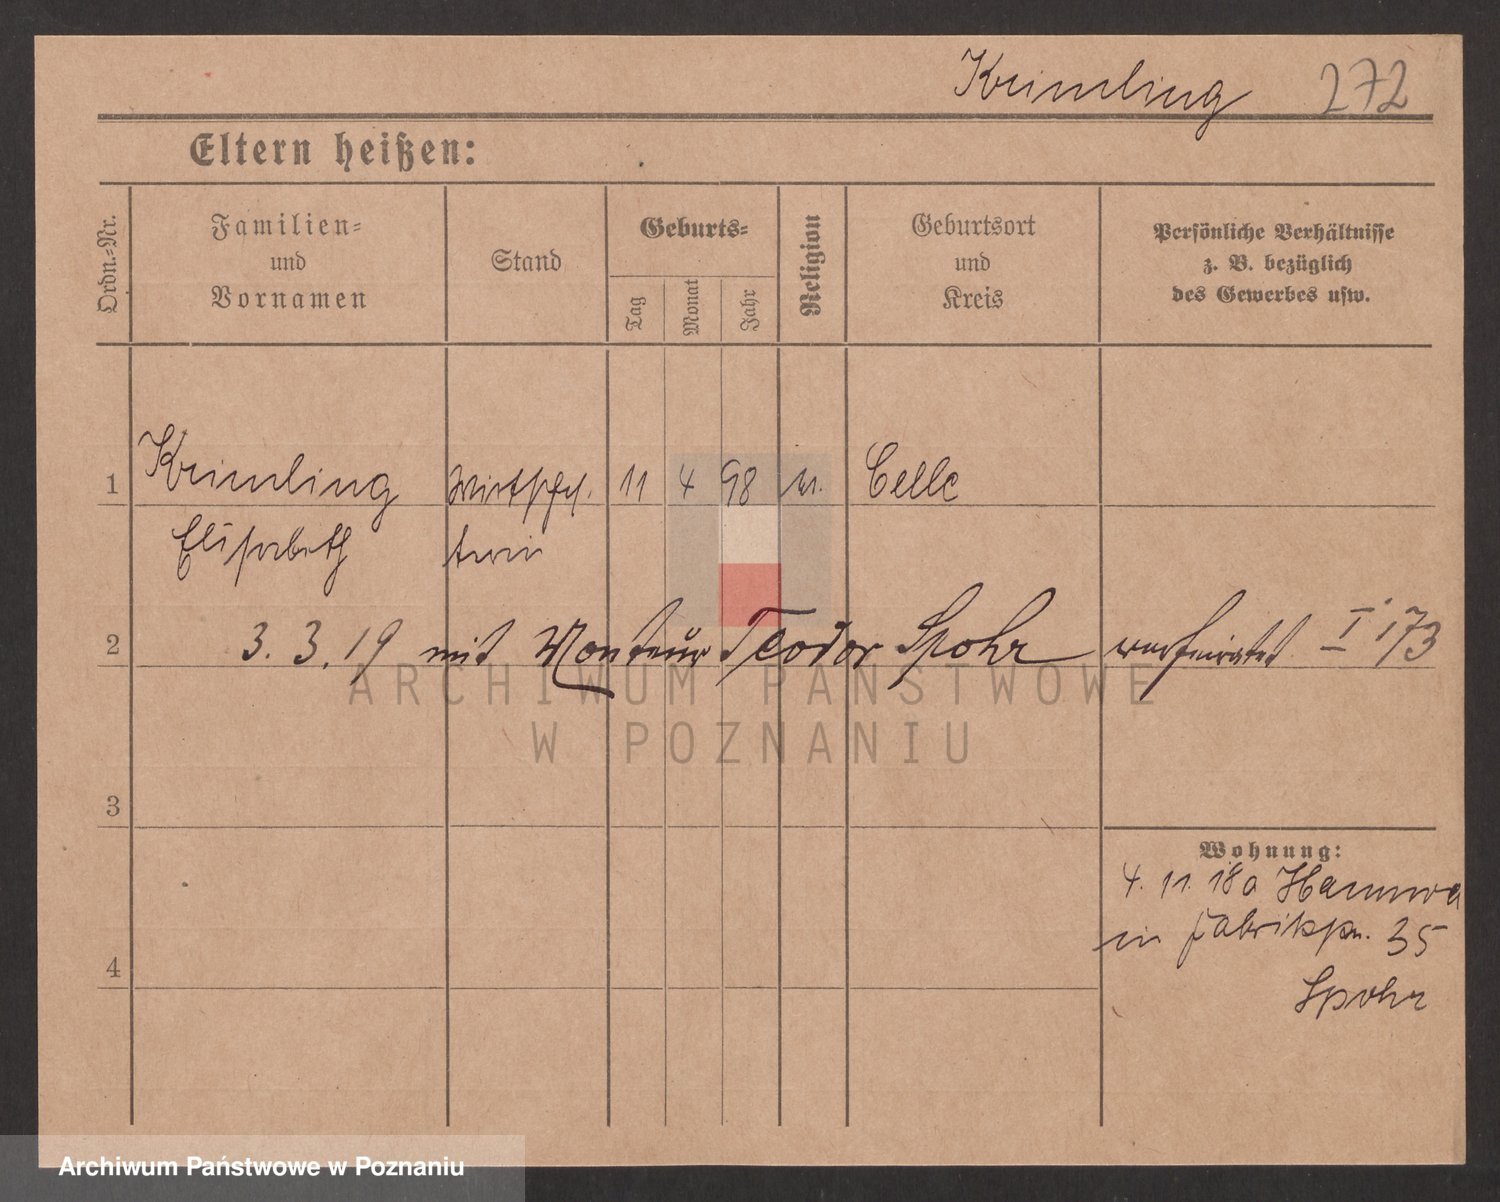 Krimling 272
Eltern heißen:
Ordn.-Nr.
Familien-
und
Vornamen
Stand
Geburts-
Tag
Monat
Jahr
Religion
Geburtsort
und
Kreis
Persönliche Verhältnisse
z. B. bezüglich
des Gewerbes usw.
1 Krimling 11 4 98 Celle
Elisabeth
2 3. 3. 19 mit Monteur Teodor Spohr verheiratet I 173
ARCHIWUM PAŃSTWOWE
W POZNANIU
3
Wohnung:
4. 11. 18 a
in 35
4
Spohr
Archiwum Państwowe w Poznaniu